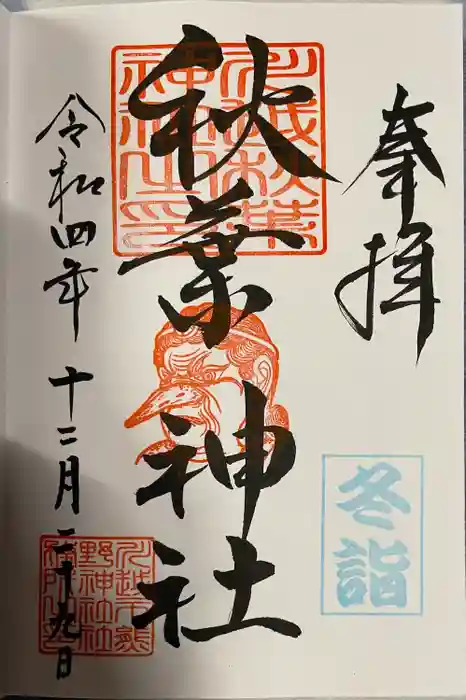 奉拝
冬詣
川越秋葉
神社之印
秋葉神社
令和四年 十二月二十九日
川越市熊
野神社社